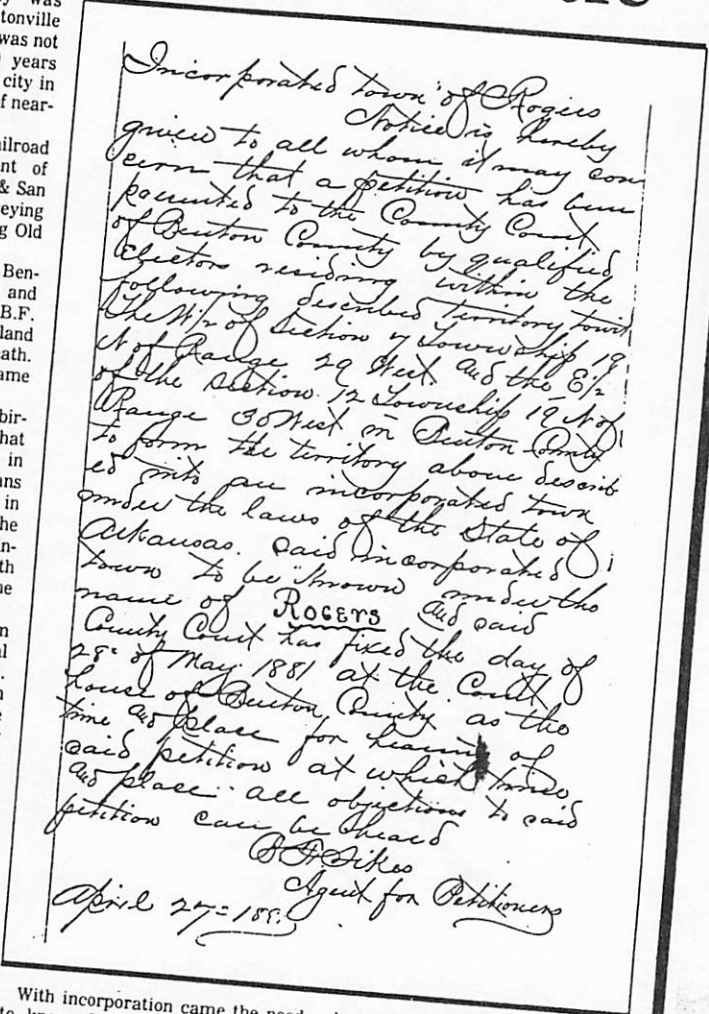 tonville
was not
years
city in
f near-
ailroad
nt of
& San
eying
g Old
Ben-
and
B.F.
land
eath.
ame
bir-
hat
in
ans
in
he
n-
th
ne
n
al
Incorporated town of Rogers
Notice is hereby
given to all whom it may con
cern that a petition has been
presented to the County Court
of Benton County by qualified
electors residing within the
following described territory towit
The W/2 of Section 7 Township 19
N of Range 29 West and the E/2
of the Section 12 Township 19 N of
Range 30 West in Benton County
to form the territory above describ
ed into an incorporated town
under the laws of the State of
Arkansas. Said incorporated
town to be known under the
name of ROGERS and said
County Court has fixed the day of
28= of May 1881 at the Court
house of Benton County as the
time and place for hearing of
said petition at which time
and place all objections to said
petition can be heard
B F Sikes
Agent for Petitioners
April 27= 188
With incorporation came the need